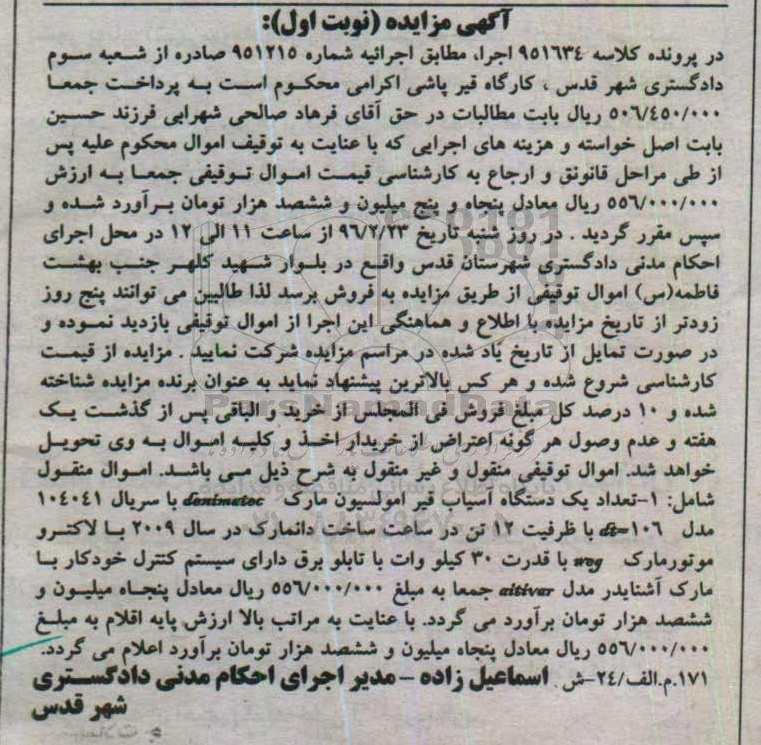 آگهی مزایده (نوبت اول):
در پرونده کلاسه ۹۵۱۶۳٤ اجرا، مطابق اجرائیه شماره ۹۵۱۲۱۵ صادره از شعبه سوم
دادگستری شهر قدس ، کارگاه قیر پاشی اکرامی محکوم است به پرداخت جمعا
۵۰۶/٤۵۰/۰۰۰ ریال بابت مطالبات در حق آقای فرهاد صالحی شهرابی فرزند حسین
بابت اصل خواسته و هزینه های اجرایی که با عنایت به توقیف اموال محکوم علیه پس
از طی مراحل قانونق و ارجاع به کارشناسی قیمت اموال توقیفی جمعا به ارزش
۵۵۶/۰۰۰/۰۰۰ ریال معادل پنجاه و پنج میلیون و ششصد هزار تومان برآورد شده و
سپس مقرر گردید . در روز شنبه تاریخ ۹۶/۲/۲۳ از ساعت ۱۱ الی ۱۲ در محل اجرای
احکام مدنی دادگستری شهرستان قدس واقع در بلوار شهید کلهر جنب بهشت
فاطمه(س) اموال توقیفی از طریق مزایده به فروش برسد لذا طالبین می توانند پنج روز
زودتر از تاریخ مزایده با اطلاع و هماهنگی این اجرا از اموال توقیفی بازدید نموده و
در صورت تمایل از تاریخ یاد شده در مراسم مزایده شرکت نمایید . مزایده از قیمت
کارشناسی شروع شده و هر کس بالاترین پیشنهاد نماید به عنوان برنده مزایده شناخته
شده و ۱۰ درصد کل مبلغ فروش فی المجلس از خرید و الباقی پس از گذشت یک
هفته و عدم وصول هر گونه اعتراض از خریدار اخذ و کلیه اموال به وی تحویل
خواهد شد. اموال توقیفی منقول و غیر منقول به شرح ذیل می باشد. اموال منقول
شامل: ۱-تعداد یک دستگاه آسیاب قیر امولسیون مارک denimotec با سریال ۱۰٤۰٤۱
مدل dt=۱۰۶ با ظرفیت ۱۲ تن در ساعت ساخت دانمارک در سال ۲۰۰۹ با لاکترو
موتورمارک weg با قدرت ۳۰ کیلو وات با تابلو برق دارای سیستم کنترل خودکار با
مارک آشنایدر مدل altivar جمعا به مبلغ ۵۵۶/۰۰۰/۰۰۰ ریال معادل پنجاه میلیون و
ششصد هزار تومان برآورد می گردد. با عنایت به مراتب بالا ارزش پایه اقلام به مبلغ
۵۵۶/۰۰۰/۰۰۰ ریال معادل پنجاه میلیون و ششصد هزار تومان برآورد اعلام می گردد.
۱۷۱.م.الف/۲٤-ش . اسماعیل زاده – مدیر اجرای احکام مدنی دادگستری
شهر قدس
ParsNamadData